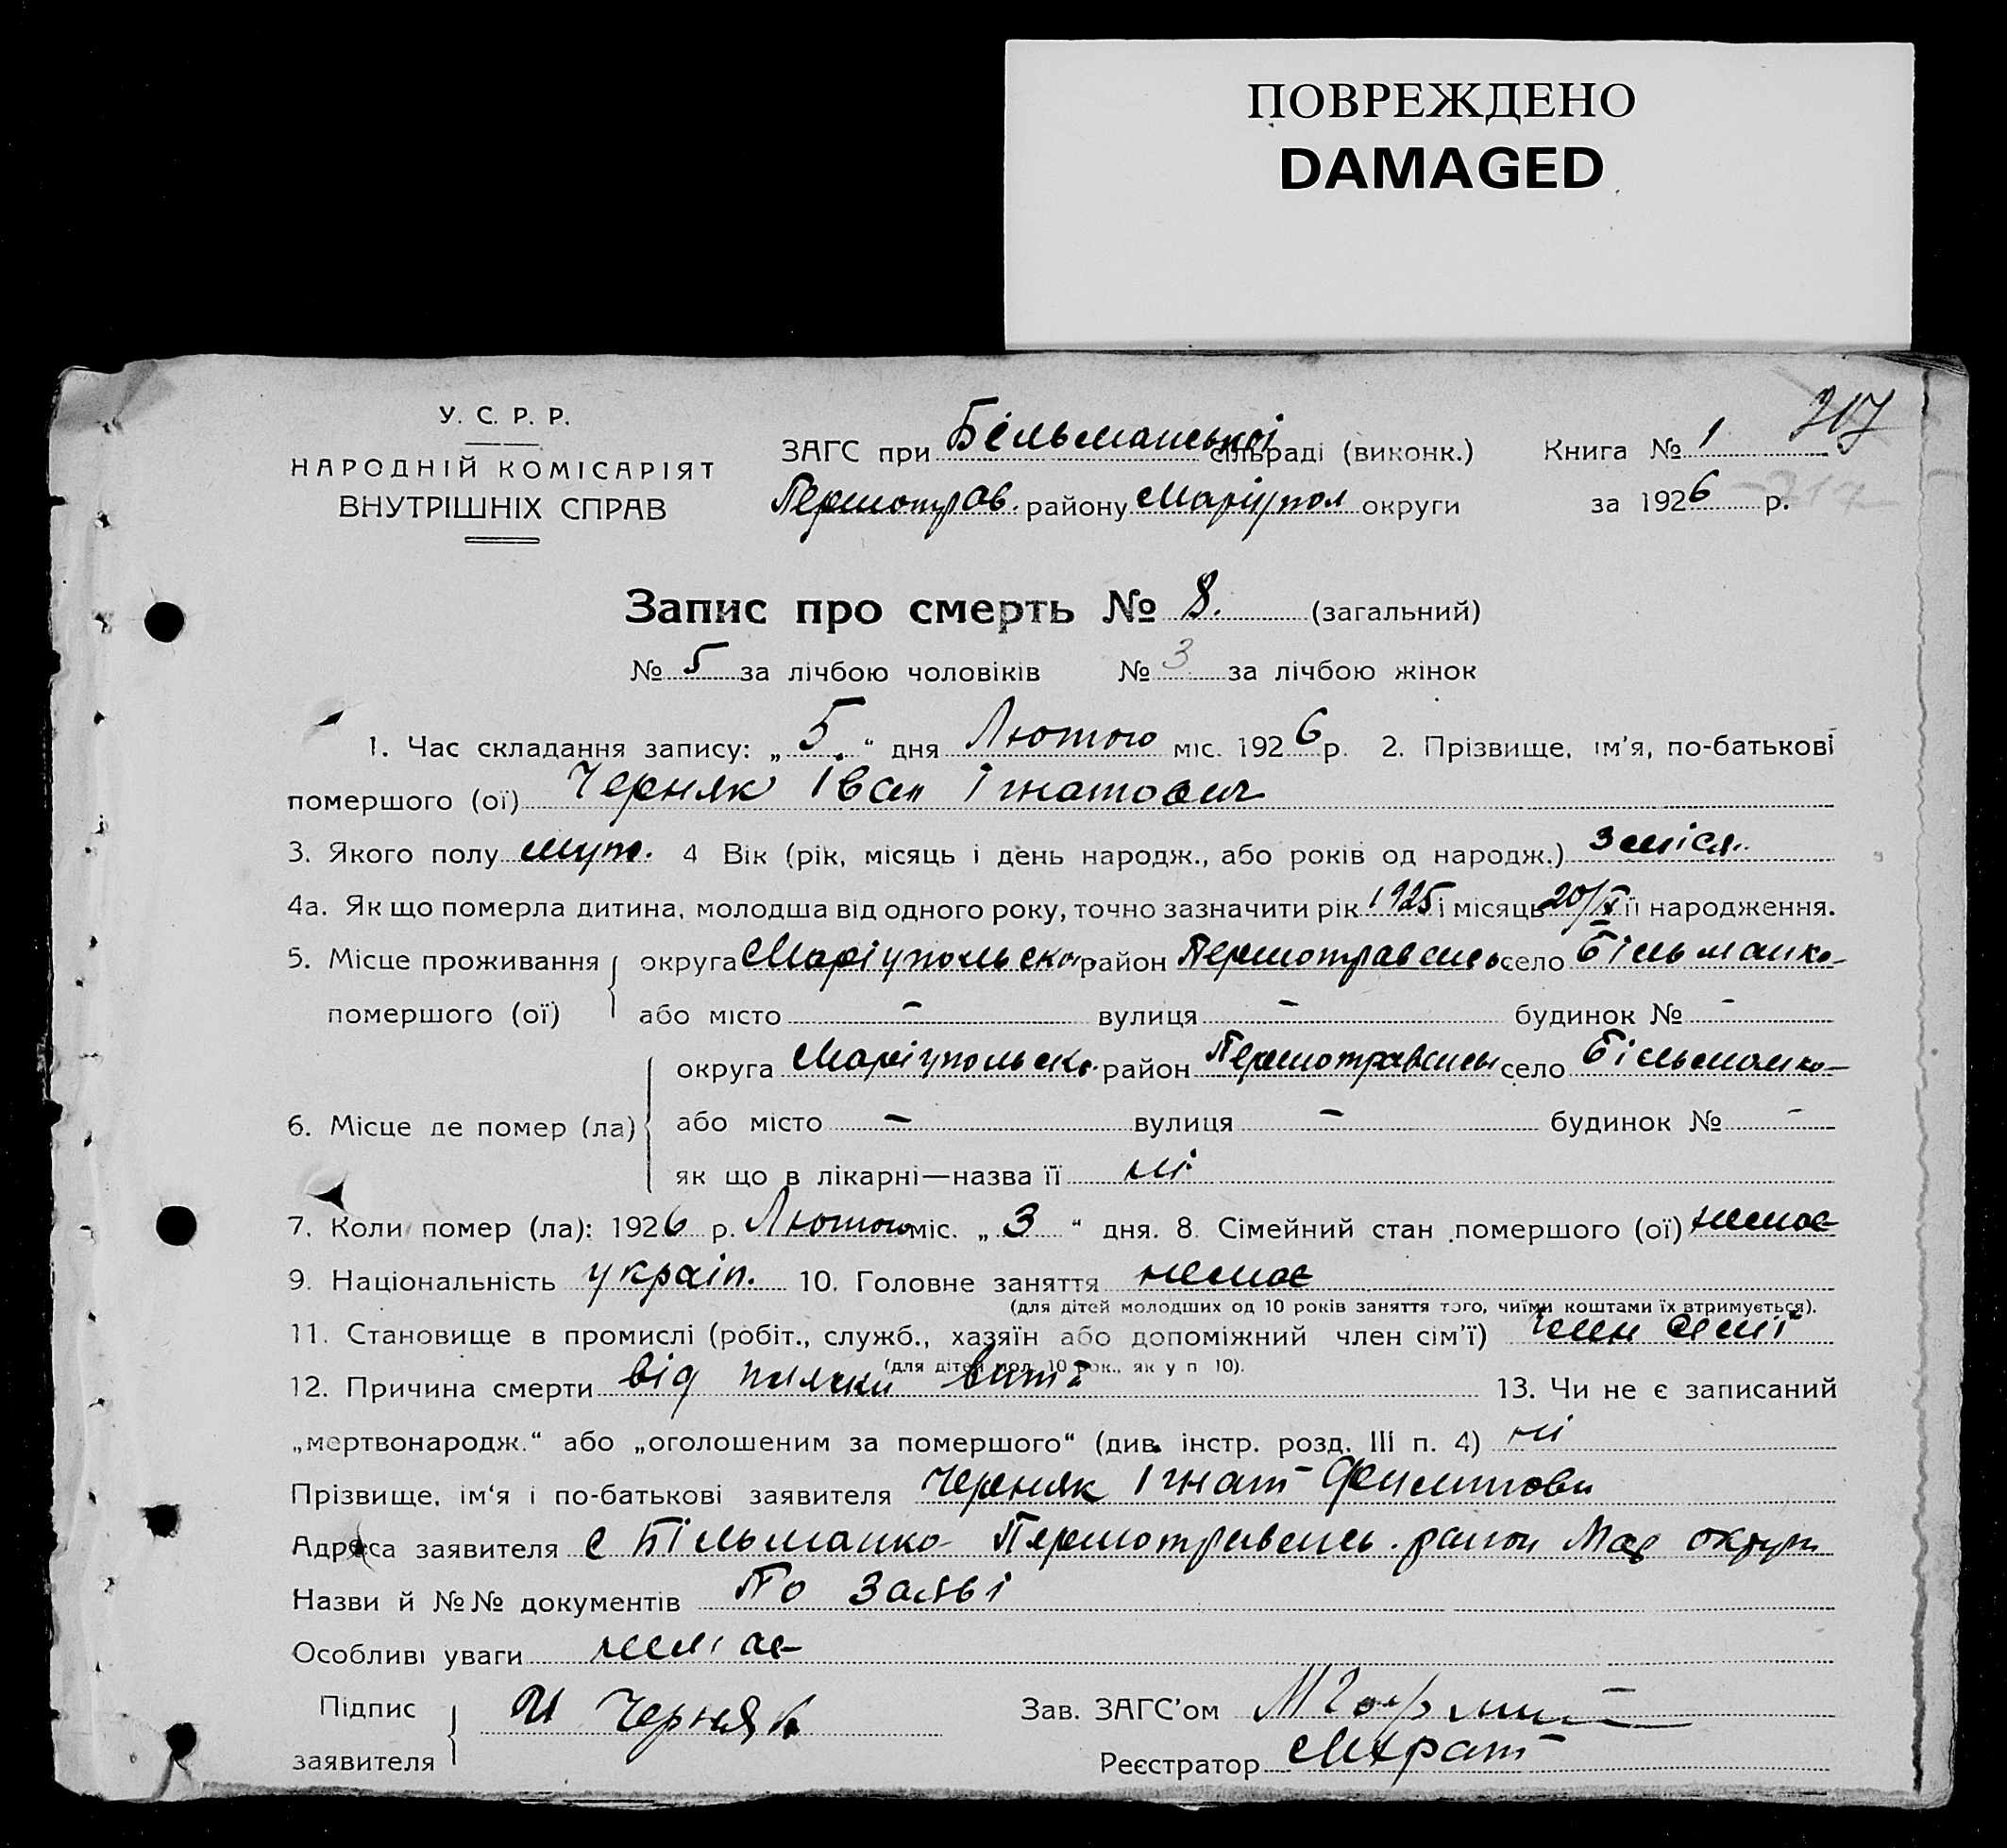 ПОВРЕЖДЕНО
DAMAGED
У. С. Р. Р.
НАРОДНІЙ КОМІСАРІЯТ
ВНУТРІШНІХ СПРАВ
ЗАГС при Більманській сільраді (виконк.)
Першотрав. району Маріупол округи
Книга № 1
за 1926 р.
Запис про смерть № 8. (загальний)
№ 5 за лічбою чоловіків № 3 за лічбою жінок
1. Час складання запису: „5“ дня Лютого міс. 1926 р. 2. Прізвище, ім'я, по-батькові
помершого (ої) Черняк Іван Ігнатович
3. Якого полу муж. 4 Вік (рік, місяць і день народж., або років од народж.) 3 міся.
4а. Як що померла дитина, молодша від одного року, точно зазначити рік 1925 і місяць 20/X її народження.
5. Місце проживання помершого (ої) округа Маріупольска район Першотравенсь село Більманка
або місто – вулиця – будинок № –
6. Місце де помер (ла) округа Маріупольска район Першотравенсь село Більманка
або місто – вулиця – будинок № –
як що в лікарні—назва її ні
7. Коли помер (ла): 1926 р. Лютого міс. „3“ дня. 8. Сімейний стан помершого (ої) немає
9. Національність україн. 10. Головне заняття немає
(для дітей молодших од 10 років заняття того, чиїми коштами їх втримується).
11. Становище в промислі (робіт., служб., хазяїн або допоміжний член сім'ї) член сімї
(для дітей мол. 10 рок., як у п 10).
12. Причина смерти від 13. Чи не є записаний
„мертвонародж.“ або „оголошеним за помершого“ (див. інстр. розд. III п. 4) ні
Прізвище, ім'я і по-батькові заявителя Черняк Ігнат
Адреса заявителя с Більманка Першотравенсь. район Мар округи
Назви й №№ документів По заяві
Особливі уваги немає
Підпис заявителя И Черняк
Зав. ЗАГС'ом
Реєстратор